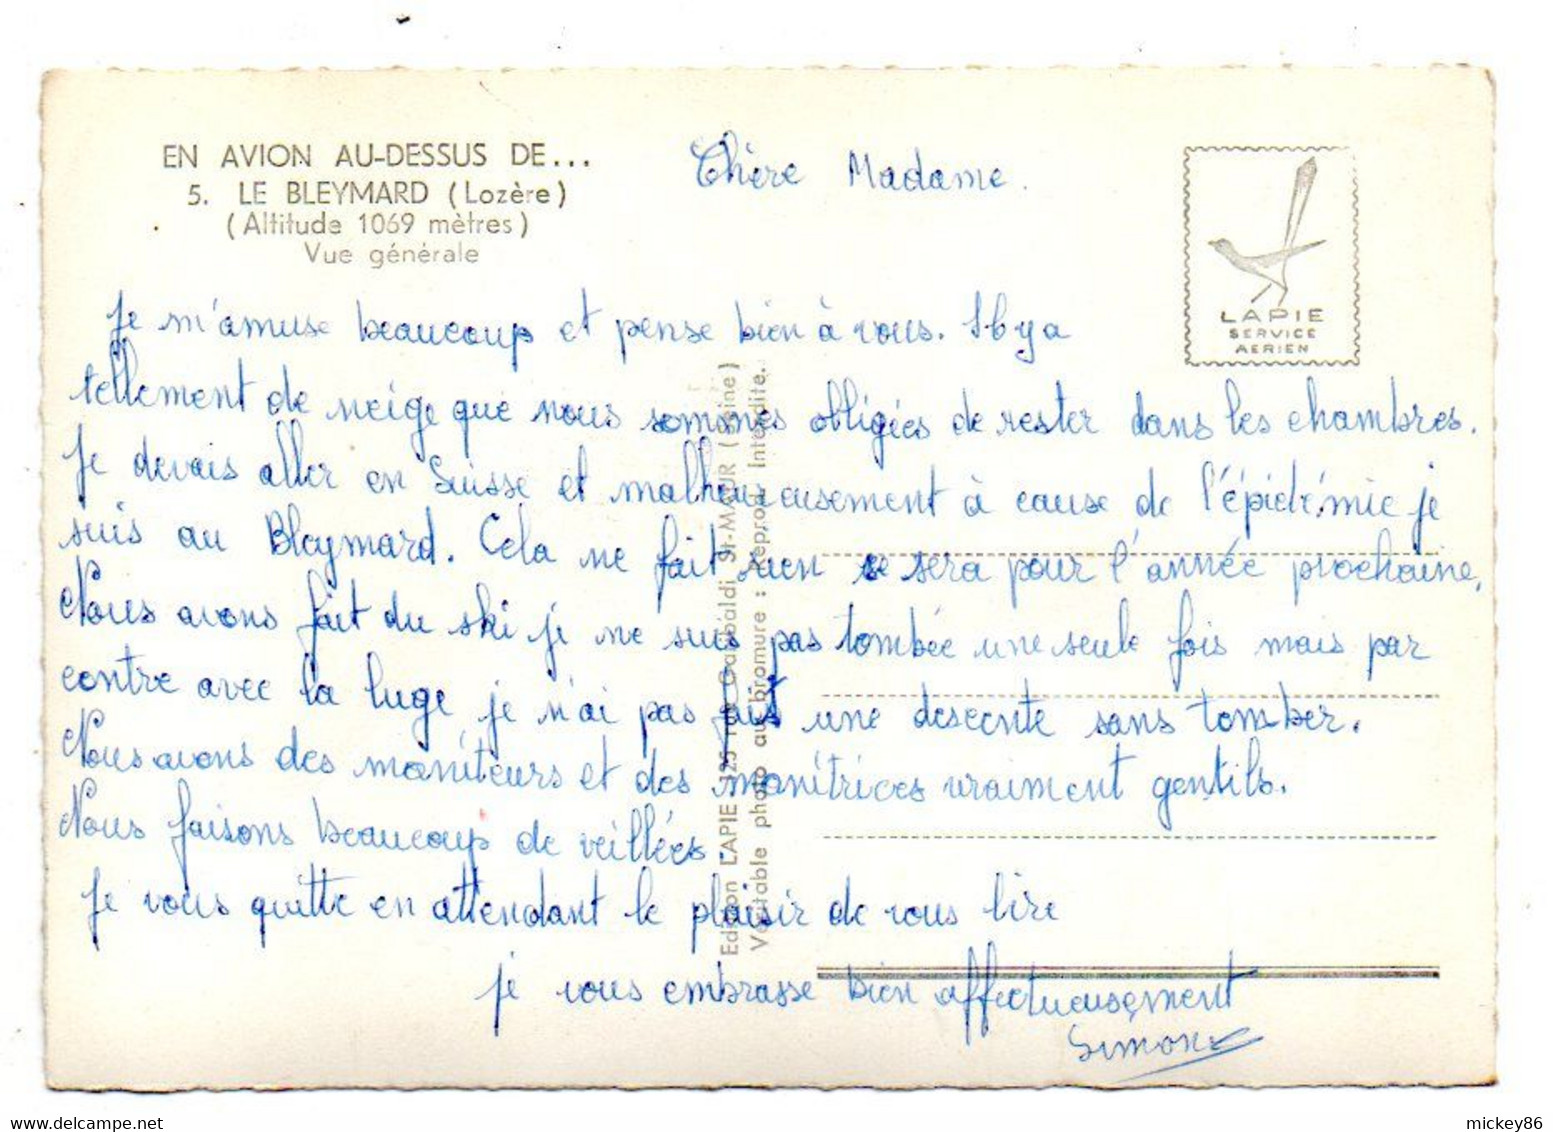 EN AVION AU-DESSUS DE...
5. LE BLEYMARD (Lozère)
(Altitude 1069 mètres)
Vue générale
Chère Madame.
LAPIE
SERVICE
AERIEN
Je m'amuse beaucoup et pense bien à vous. Il y a
tellement de neige que nous sommes obligées de rester dans les chambres.
Je devais aller en Suisse et malheureusement à cause de l'épidémie je
suis au Bleymard. Cela ne fait rien se sera pour l'année prochaine.
Nous avons fait du ski je ne suis pas tombée une seule fois mais par
contre avec la luge je n'ai pas fait une descente sans tomber.
Nous avons des moniteurs et des monitrices vraiment gentils.
Nous faisons beaucoup de veillées.
Je vous quitte en attendant le plaisir de vous lire
je vous embrasse bien affectueusement
Simone
Edition LAPIE 125 rue Garibaldi St-MAUR (Seine)
Véritable photo au bromure : Reprod. Interdite.
mickey86